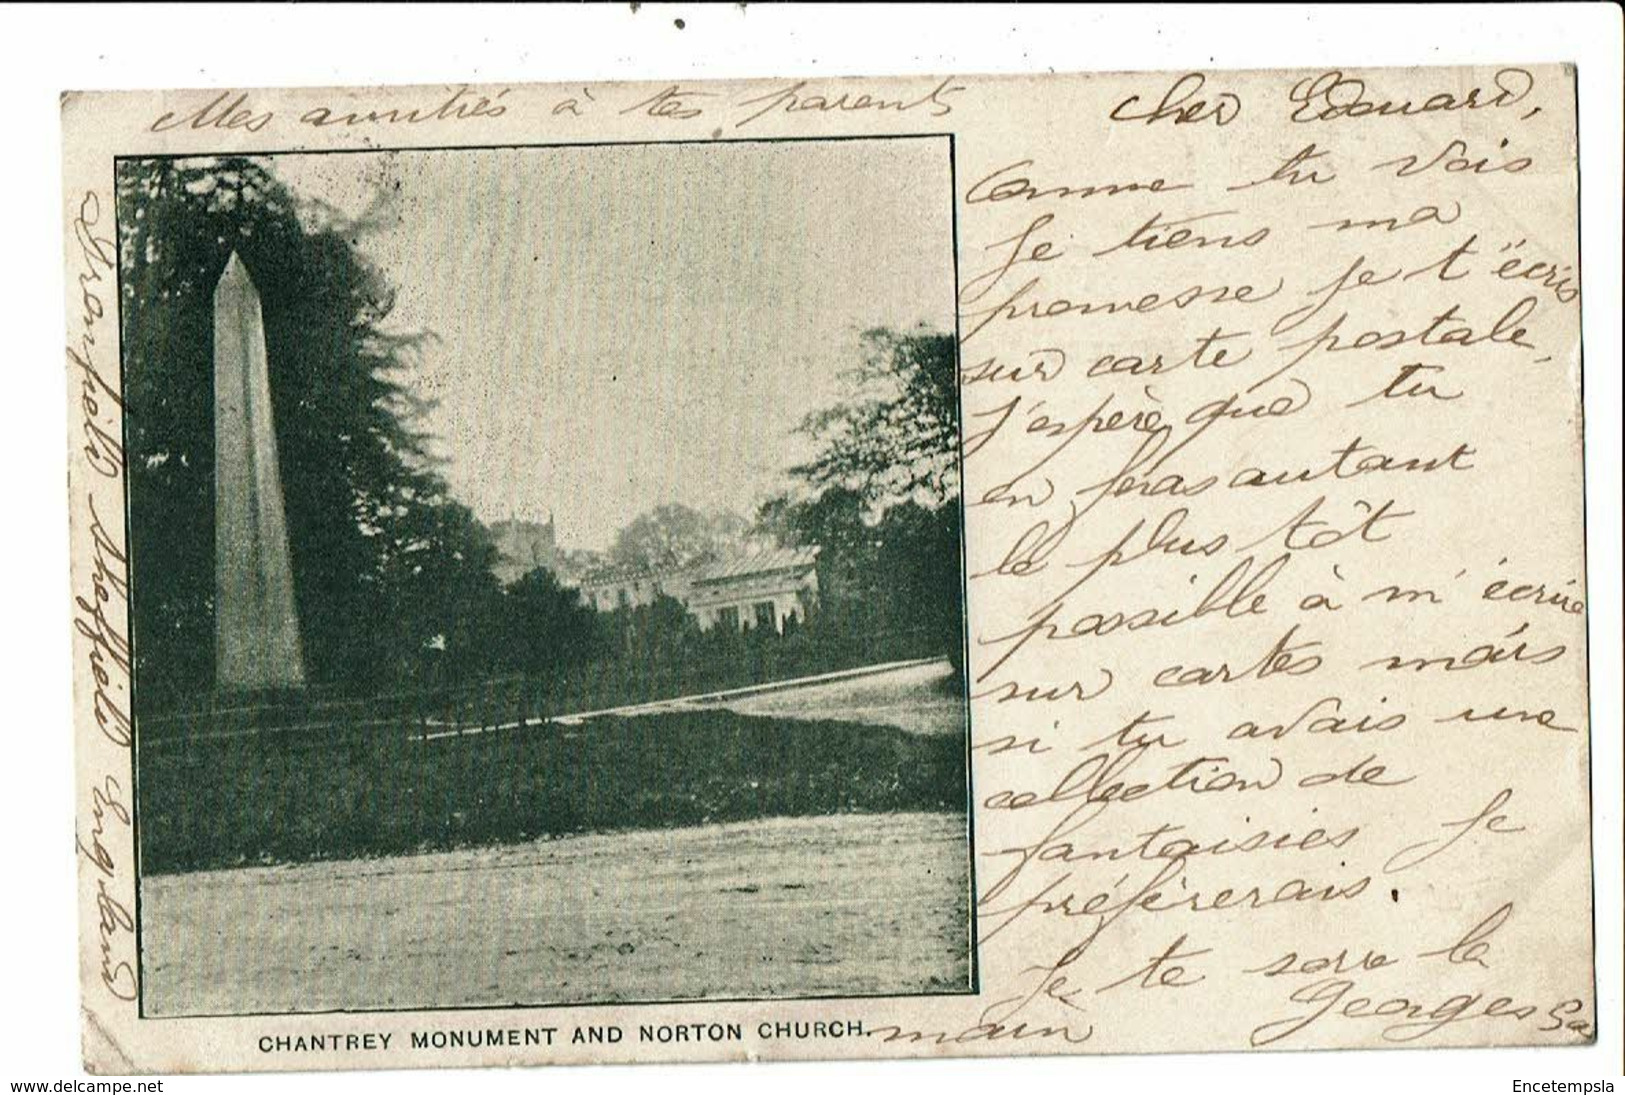 Mes amitiés à tes parents
Cher Edouard,
Comme tu vois
je tiens ma
promesse je t'écris
sur carte postale,
J'espère que tu
en feras autant
le plus tôt
possible à m'écrire
sur cartes mais
si tu avais une
collection de
fantaisies je
préférerais.
Je te serre la
main Georges
Dronfield Sheffield England
CHANTREY MONUMENT AND NORTON CHURCH.
www.delcampe.net
Encetempsla